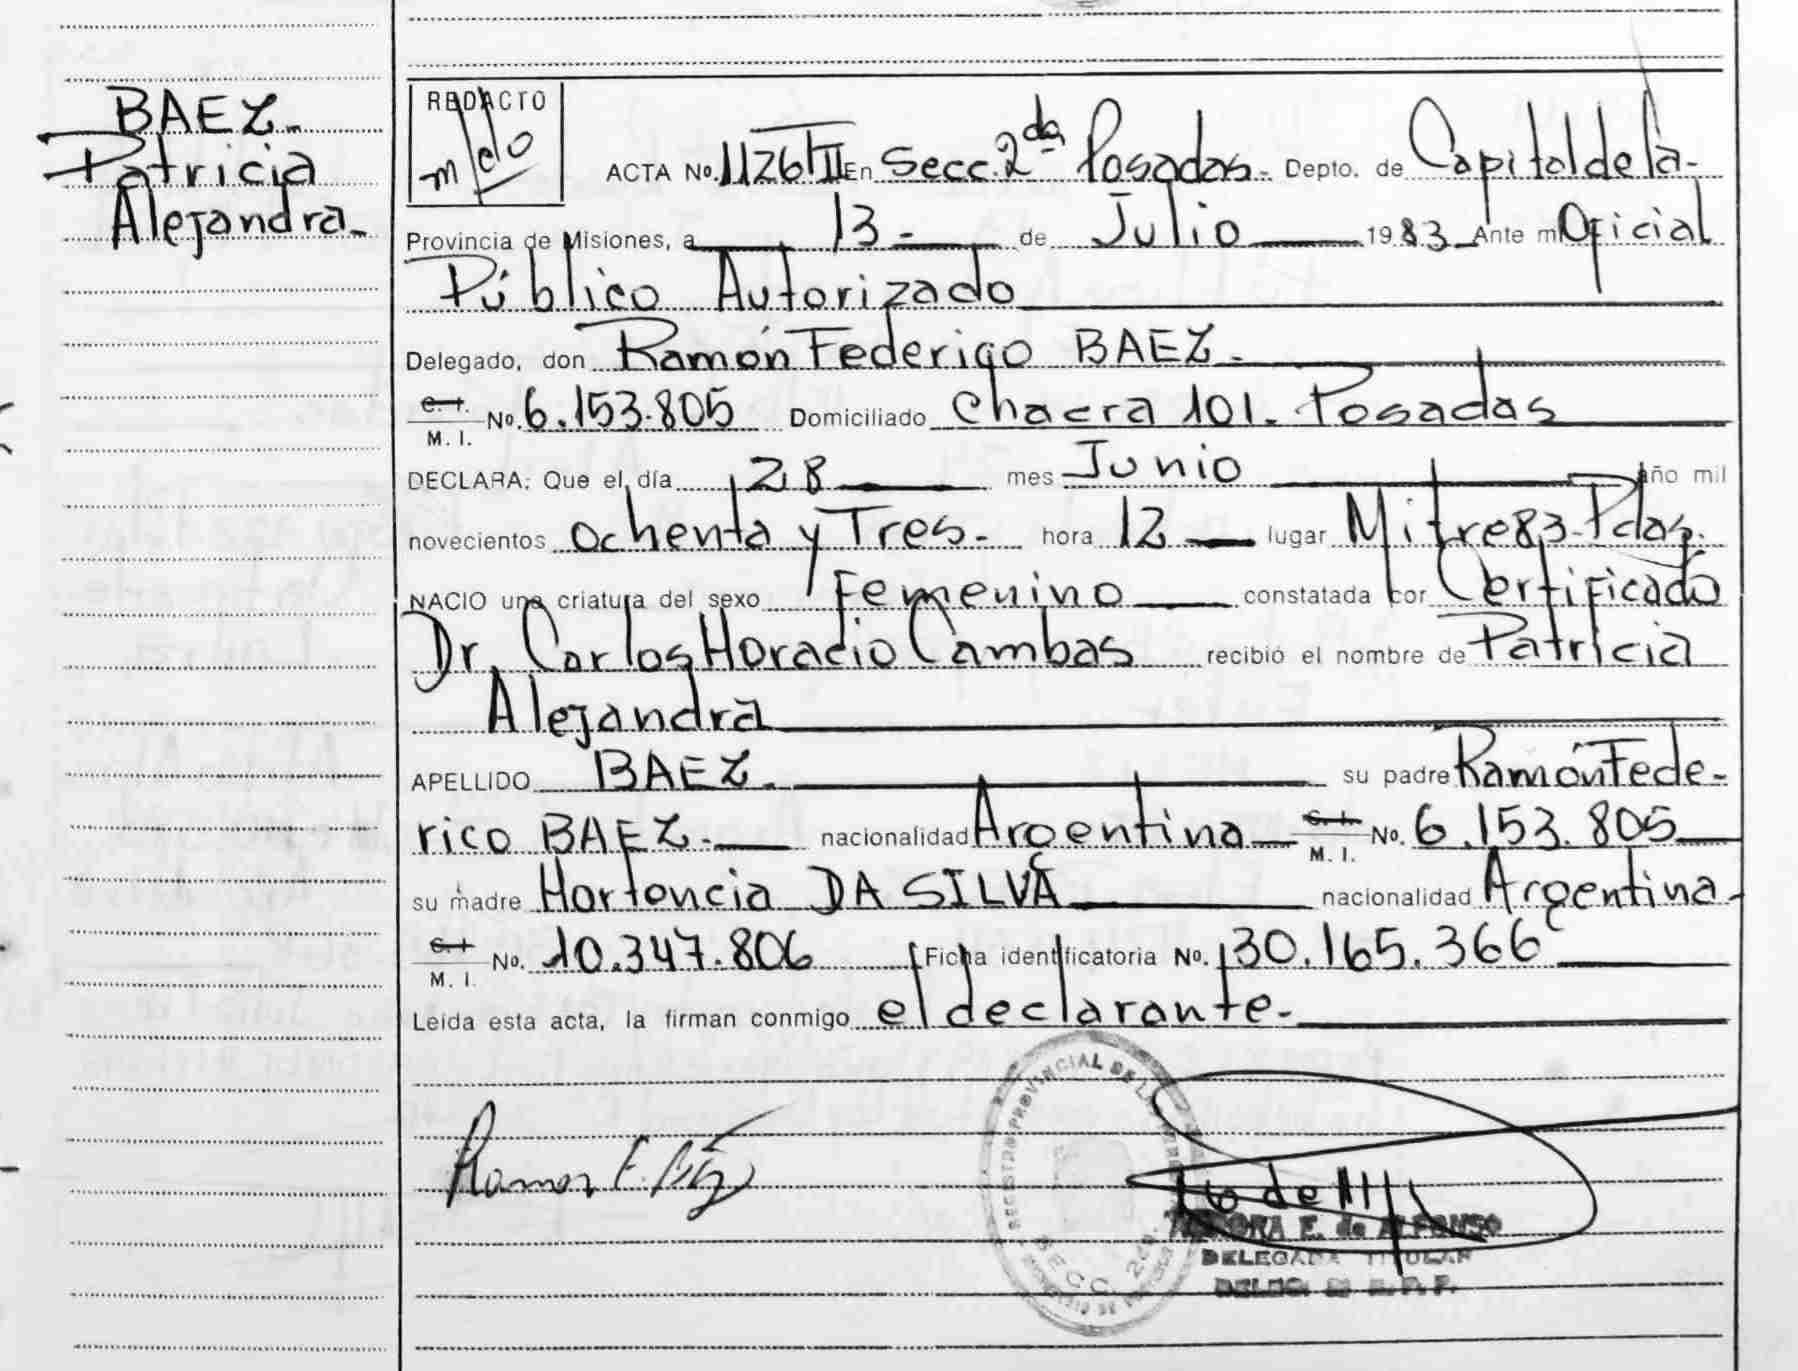 BAEZ.
Patricia
Alejandra.
REDACTO
ACTA No. 1126 TII En Secc. 2da Posadas. Depto. de Capital de la
Provincia de Misiones, a 13 de Julio 1983 Ante mi Oficial
Público Autorizado
Delegado, don Ramón Federico BAEZ.
C. I. M. I. No. 6.153.805 Domiciliado Chacra 101. Posadas
DECLARA: Que el día 28 mes Junio año mil
novecientos ochenta y Tres. hora 12 lugar Mitre 83-Pdas.
NACIO una criatura del sexo Femenino constatada por Certificado
Dr. Carlos Horacio Cambas recibió el nombre de Patricia
Alejandra
APELLIDO BAEZ. su padre Ramón Fede-
rico BAEZ. nacionalidad Argentina C. I. M. I. No. 6.153.805
su madre Hortencia DA SILVA nacionalidad Argentina
C. I. M. I. No. 10.347.806 Ficha identificatoria No. 30.165.366
Leída esta acta, la firman conmigo el declarante.
REGISTRO PROVINCIAL DE LAS
SECC. 2da.
Ramon F. Báez
E. de ALFONSO
DELEGADA TITULAR